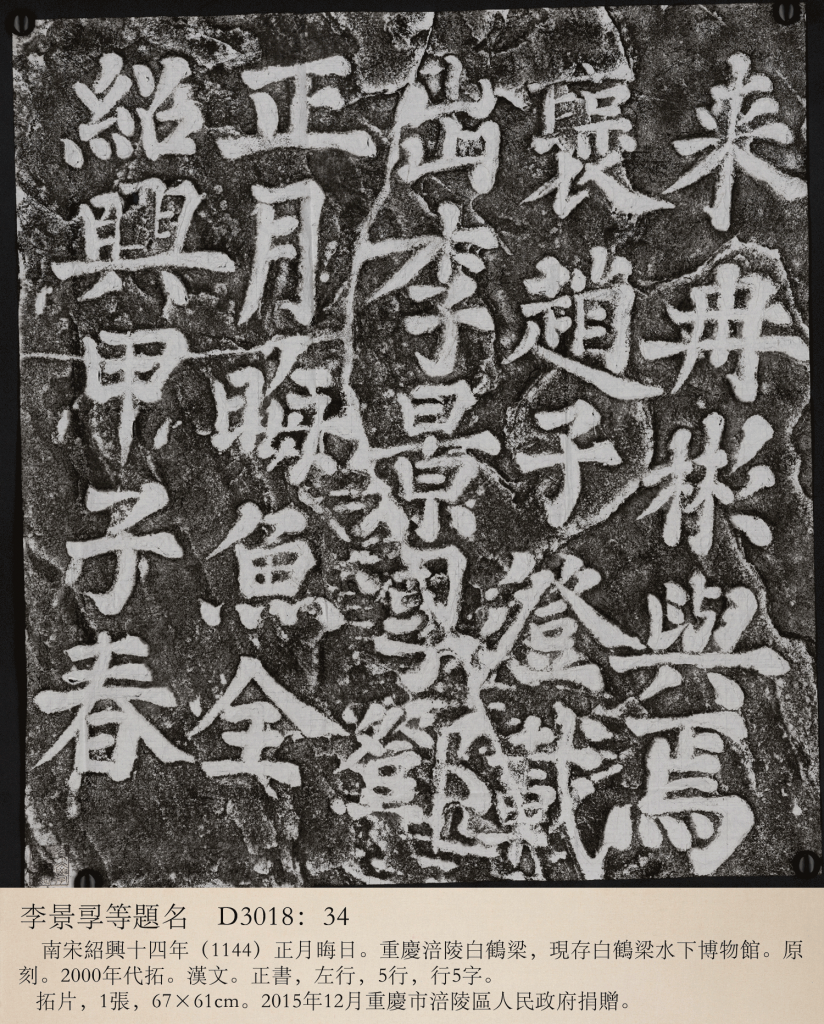 紹興甲子春
正月晦魚全
出李景孠鄧
襃趙子澄載
来冉彬與焉
李景孠等題名 D3018：34
南宋紹興十四年（1144）正月晦日。重慶涪陵白鶴梁，現存白鶴梁水下博物館。原
刻。2000年代拓。漢文。正書，左行，5行，行5字。
拓片，1張，67×61cm。2015年12月重慶市涪陵區人民政府捐贈。